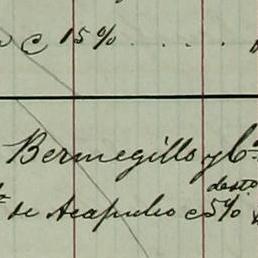 c 15% . . . .
Bermegillo y Ca
desto
de Acapulco c 5%